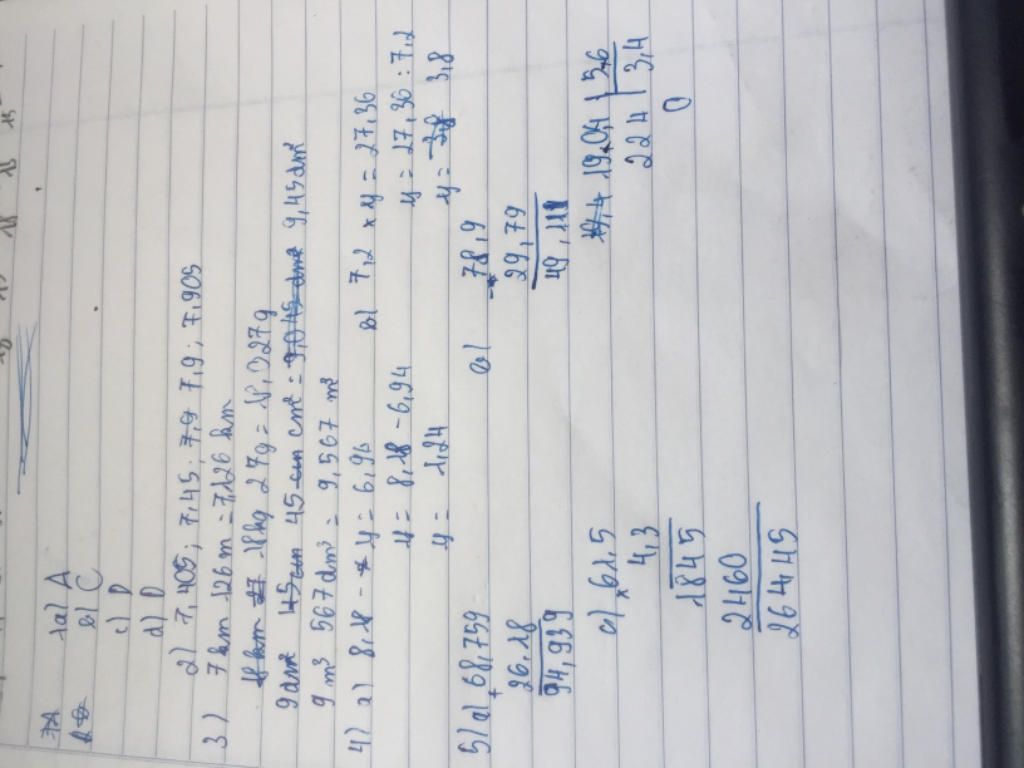 1a) A
b) C
c) D
d) D
2) 7,405; 7,45. 7,9 7,9; 7,905
3) 7 km 126 m = 7,126 km
18kg 27g = 18,027g
9dm² 45 cm² = 9,45dm²
9 m³ 567dm³ = 9,567 m³
4) a) 8,18 - y = 6,94
y = 8,18 - 6,94
y = 1,24
b) 7,2 × y = 27,36
y = 27,36 : 7,2
y = 3,8
5) a) 68,759
+
26,18
94,939
78,9
-
29,79
49,11
c) × 61,5
4,3
1845
2460
26445
19,04 | 5,6
224 | 3,4
0